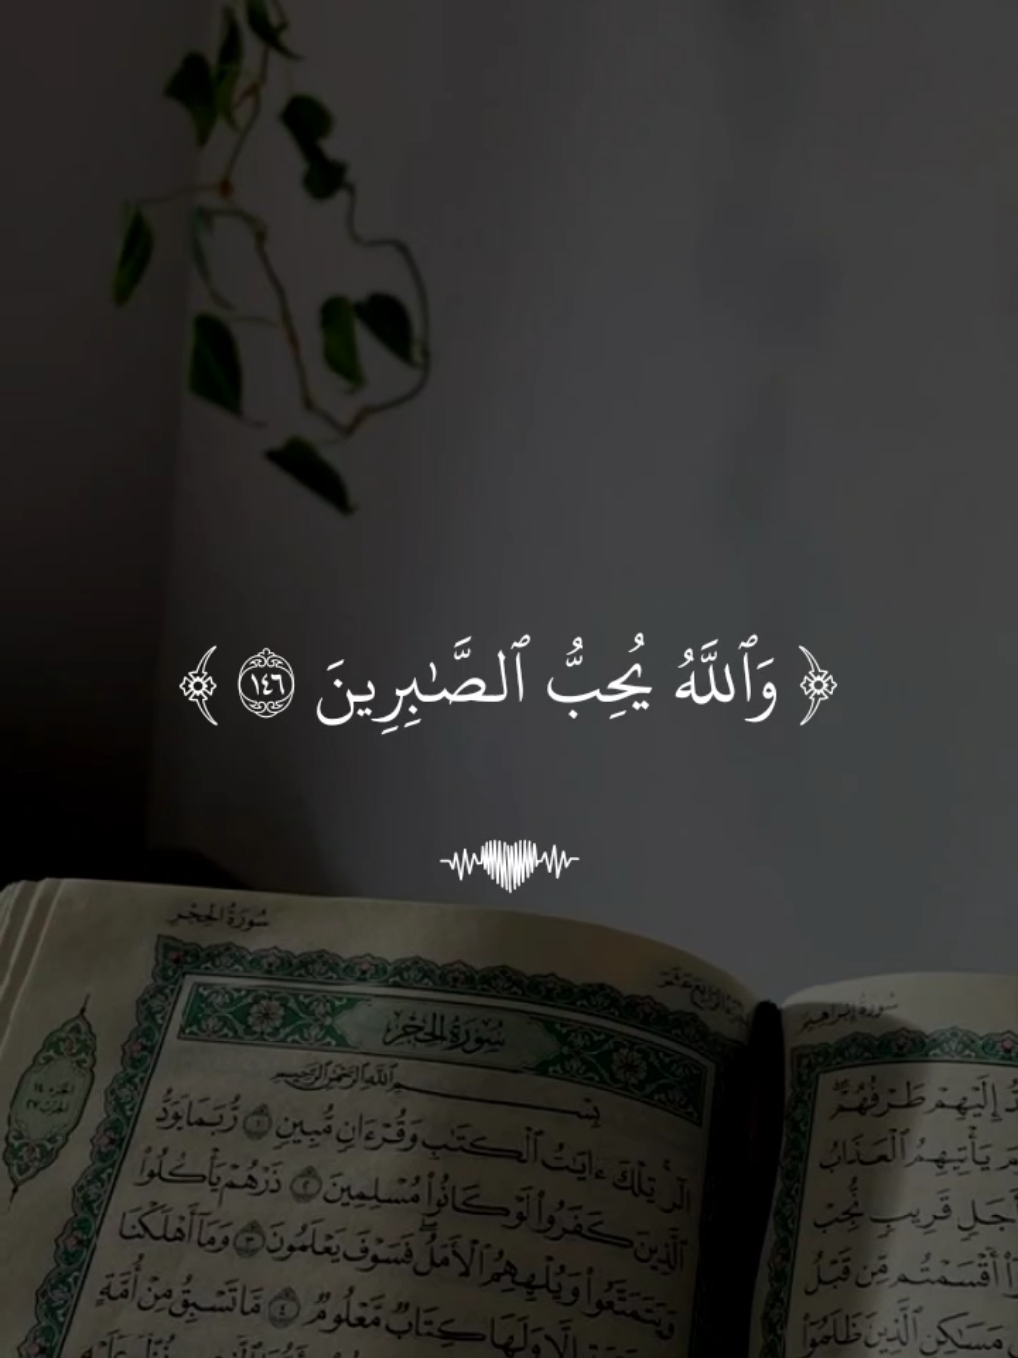 ﴿ وَٱللَّهُ يُحِبُّ ٱلصَّٰبِرِينَ ١٤٦ ﴾
سُورَةُ الحِجْرِ
سُورَةُ إِبْرَاهِيمَ
سُورَةُ الحِجْرِ
بِسْمِ ٱللَّهِ ٱلرَّحْمَٰنِ ٱلرَّحِيمِ
الٓر تِلْكَ ءَايَٰتُ ٱلْكِتَٰبِ وَقُرْءَانٍ مُّبِينٍ ١ رُّبَمَا يَوَدُّ
ٱلَّذِينَ كَفَرُوا۟ لَوْ كَانُوا۟ مُسْلِمِينَ ٢ ذَرْهُمْ يَأْكُلُوا۟
وَيَتَمَتَّعُوا۟ وَيُلْهِهِمُ ٱلْأَمَلُ ۖ فَسَوْفَ يَعْلَمُونَ ٣ وَمَآ أَهْلَكْنَا
إِلَّا وَلَهَا كِتَابٌ مَّعْلُومٌ ٤ مَّا تَسْبِقُ مِنْ أُمَّةٍ
إِلَيْهِمْ طَرْفُهُمْ ۖ
يَأْتِيهِمُ ٱلْعَذَابُ
أَجَلٍ قَرِيبٍ نُّجِبْ
أَقْسَمْتُم مِّن قَبْلُ
مَسَٰكِنِ ٱلَّذِينَ ظَلَمُوٓا۟